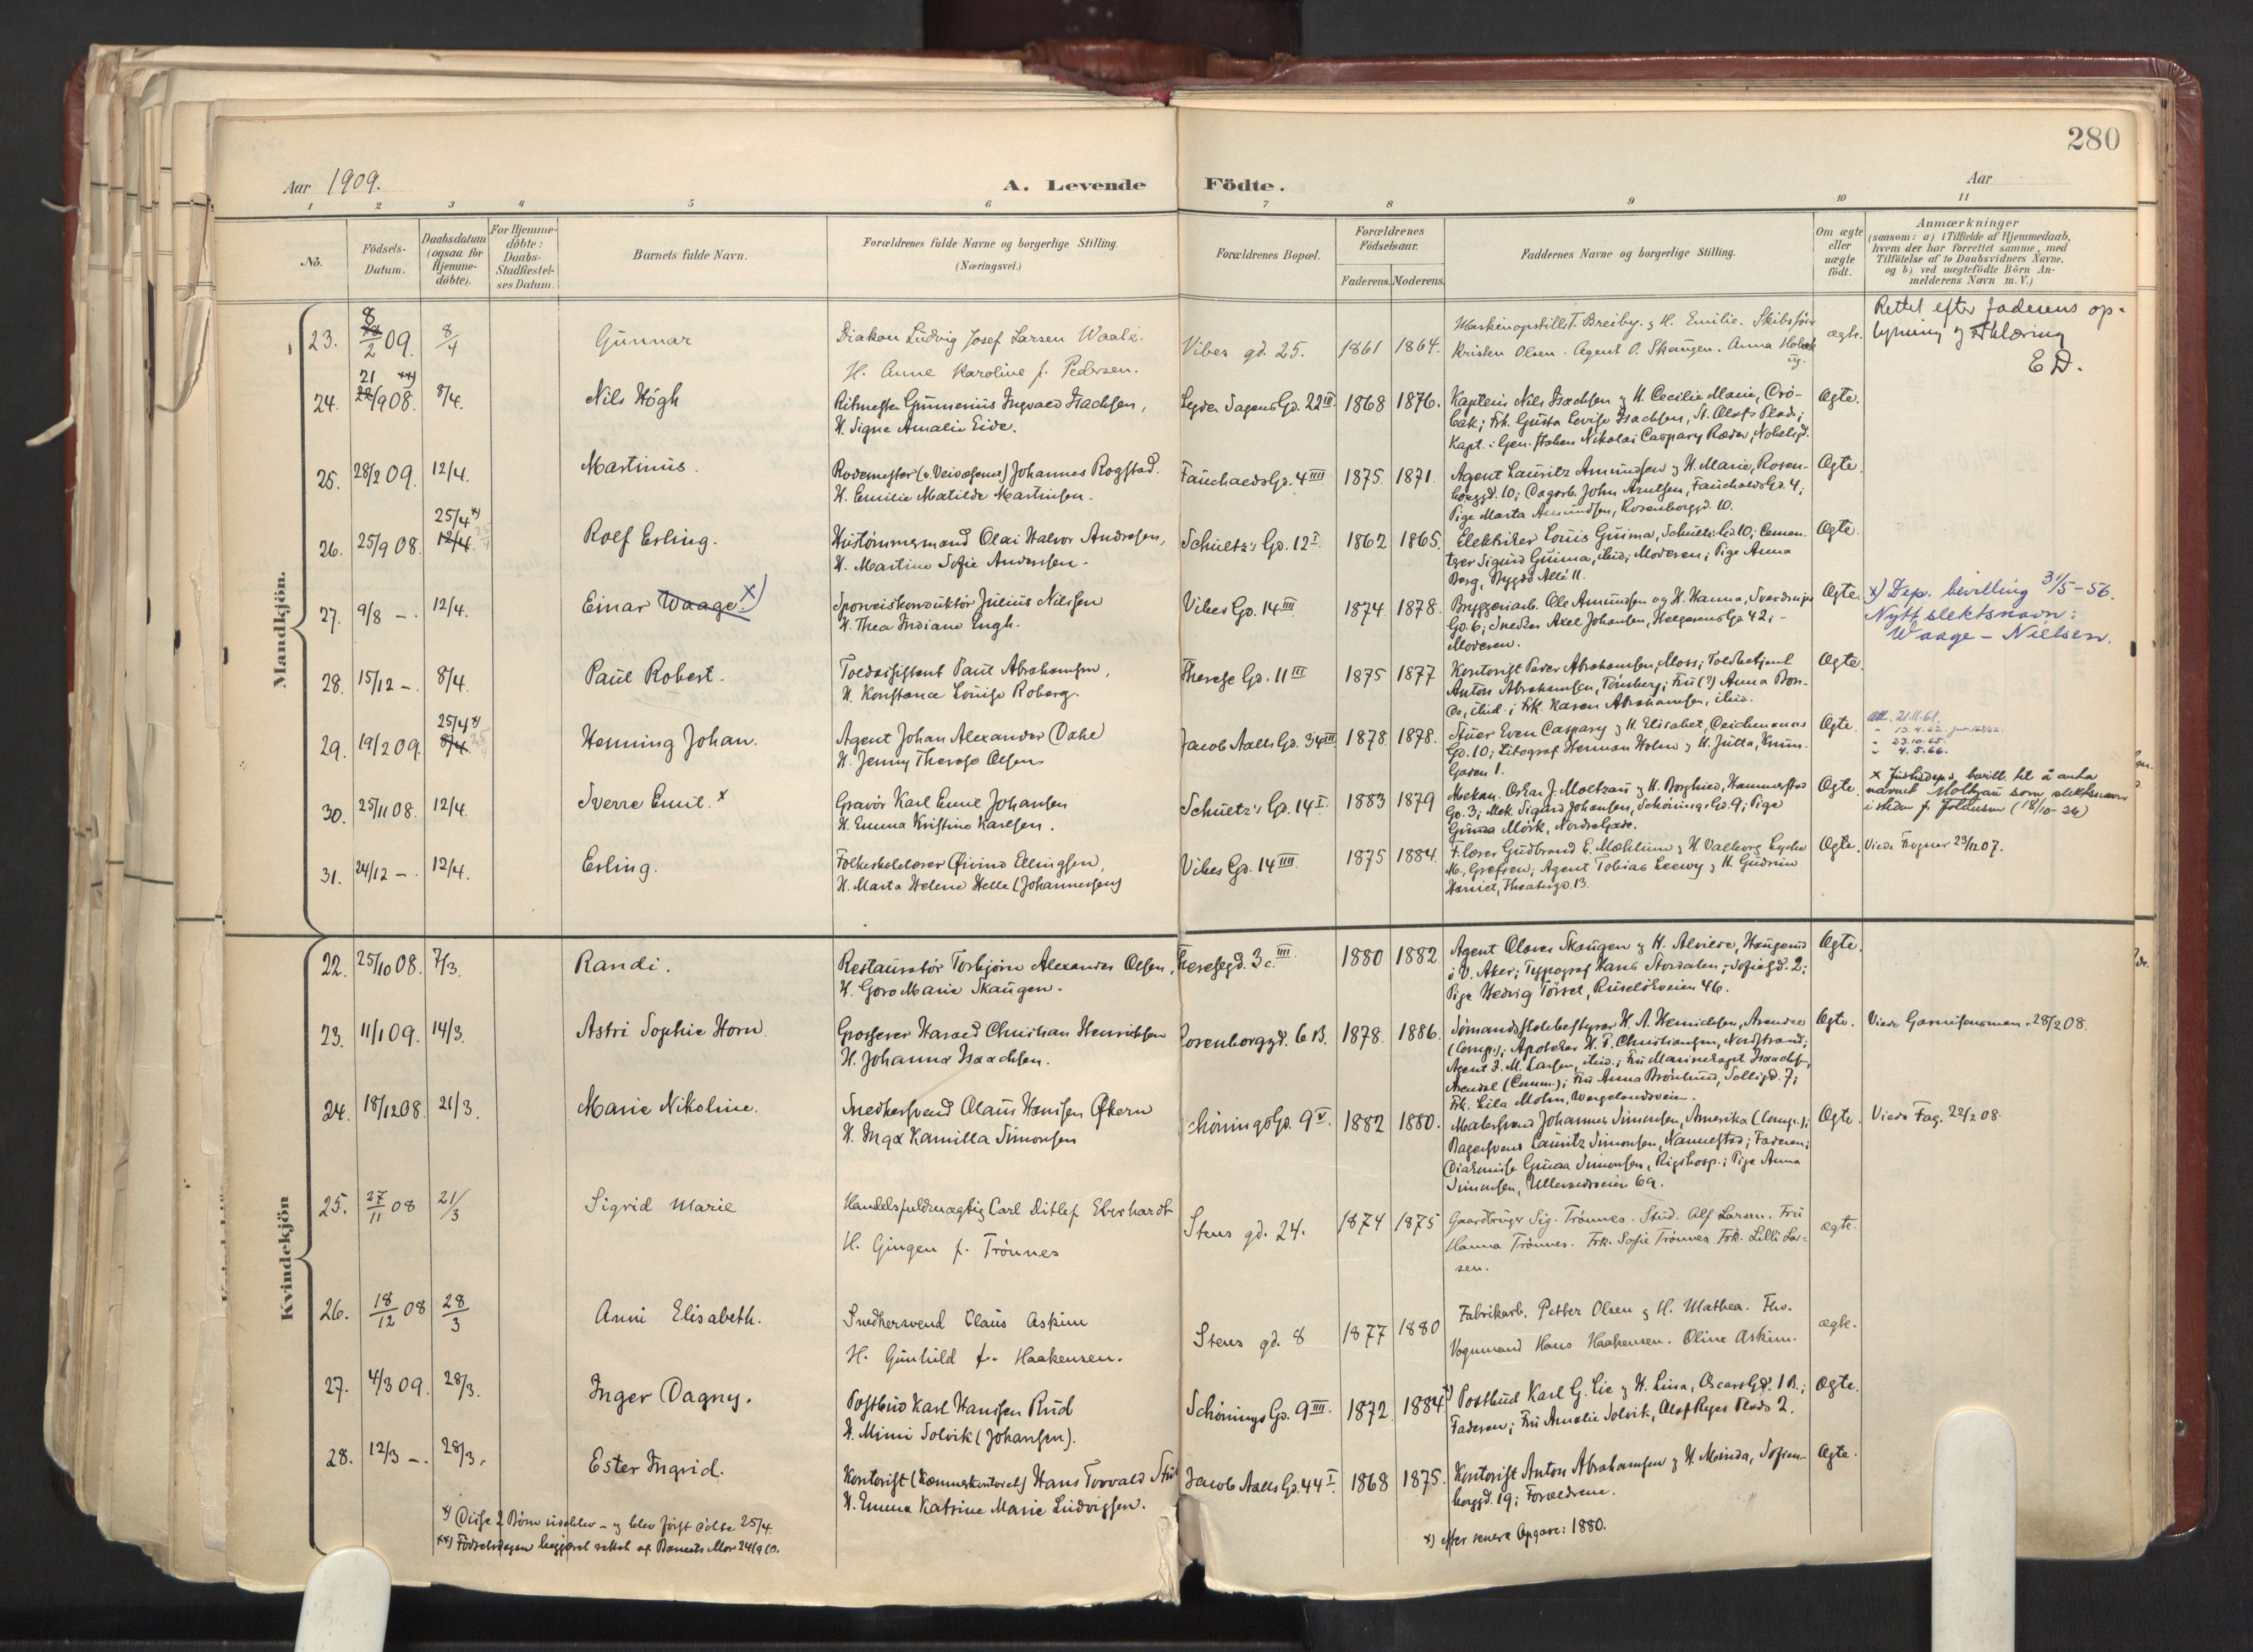 280
Aar 1909.
A. Levende Födte.
Aar
1 2 3 4 5 6 7 8 9 10 11
No.
Födsels-
Datum.
Daabsdatum
(ogsaa for
Hjemme-
döbte).
For Hjemme-
döbte:
Daabs-
Stadfæstel-
ses Datum.
Barnets fulde Navn.
Forældrenes fulde Navne og borgerlige Stilling.
(Næringsvei.)
Forældrenes Bopæl.
Forældrenes
Födselsaar.
Faderens. Moderens.
Faddernes Navne og borgerlige Stilling.
Om ægte
eller
uægte
födt.
Anmærkninger
(saasom: a) i Tilfælde af Hjemmedaab,
hvem der har forrettet samme, med
Tilföielse af to Daabsvidners Navne.
og b) ved uægtefödte Börn An-
melderens Navn m. V.)
Mandkjön.
23. 8/2 09. 8/4 Gunnar
Diakon Ludvig Josef Larsen Waale.
H. Anne Karoline f. Pedersen.
Vibes gd. 25. 1861 1864.
Maskinopstill. T. Breiby. & H. Emilie. Skibsförer
Kristen Olsen. Agent O. Skaugen. Anna Holbæk
ug.
ægte.
Rettet efter faderens op-
lysning & Erklæring
E D.
24. 21 **) /9 08. 8/4. Nils Högh
Ritmester Gunnerius Ingvald Isachsen,
H. Signe Amalie Eide.
Lyder Sagens Gd. 22 III 1868 1876.
Kaptein Nils Isachsen & H. Cecilie Marie, Drö-
bak; Frk. Gusta Lovise Isachsen, St. Olafs Plads;
Kapt. i Gen. staben Nikolai Caspary Ræder, Nobelsgd.
Ægte.
25. 28/2 09. 12/4. Martinus.
Rodemester (v. Veivæsenet) Johannes Rogstad.
H. Emilie Matilde Martinsen.
Fauchalds Gd. 4 IIII 1875. 1871.
Agent Lauritz Amundsen & H. Marie, Rosen-
borggd. 10; Dagarb. John Arntsen, Fauchalds Gd. 4;
Pige Marta Amundsen, Rosenborggd. 10.
Ægte.
26. 25/9 08. 25/4 *) 12/4. Rolf Erling.
Hustömmermand Olai Halvor Andresen,
H. Martine Sofie Andersen.
Schultz's Gd. 12 I 1862 1865.
Elektriker Louis Guima, Schultz Gd 10; Cemen-
tger Sigurd Guima, ibid; Moderen; Pige Anna
Berg, Bygdö Allé 11.
Ægte.
27. 9/8 -. 12/4. Einar Waage. x)
Sporveiskonduktör Julius Nilssen
H. Thea Indiane Engh.
Vibes Gd. 14 III 1874. 1878.
Bryggeriarb. Ole Amundsen og H. Hanna, Sverdrups
Gd. 6; Snedker Axel Johansen, Helgesens Gd 42; -
Moderen.
Ægte.
x) Dep. bevilling 31/5-56.
Nytt slektsnavn:
Waage-Nielsen.
28. 15/12 -. 8/4. Paul Robert.
Toldassistent Paul Abrahamsen,
H. Konstance Louise Roberg.
Therese Gd. 11 III 1875 1877
Kontorist Peder Abrahamsen, Moss; Toldbetjent
Anton Abrahamsen, Tönsberg; Fru (?) Anna Bon-
de, ibid.; Frk. Karen Abrahamsen, ibid.
Ægte.
29. 19/2 09. 25/4 *) 8/4. Henning Johan.
Agent Johan Alexander Dahl
H. Jenny Therese Olsen
Jacob Aalls Gd. 34 III 1878. 1878.
Stuer Even Caspary & H. Elisabet, Deichmanns
Gd. 10; Litograf Herman Holm & H. Jutta, Krum-
Gaden 1.
Ægte.
Att. 21.11.61.
" 13.4.62.
" 23.10.65.
" 4.5.66.
30. 25/11 08. 12/4. Sverre Emil. x
Gravör Karl Emil Johansen
H. Emma Kristine Karlsen.
Schultz's Gd. 14 I. 1883 1879
Mekan. Oskar J. Moltzau & H. Borghild, Hammerstad
Gd. 3; Mek. Sigurd Johansen, Schönings Gd. 9; Pige
Gunda Mörk, Nordre Gade.
Ægte.
x Justisdep's bevill. til å anta
navnet Moltzau som slektsnavn
isteden f. Johansen (18/10-26)
31. 24/12 -. 12/4. Erling.
Folkeskolelærer Øivind Ellingsen,
H. Marta Helene Helle (Johannessen)
Vibes Gd. 14 IIII. 1875 1884.
F.lærer Gudbrand E. Mæhlum & H. Valborg Lycke
M., Grefsen; Agent Tobias Leewy & H. Gudrun
Harriet, Theatergd. 13.
Ægte.
Viede Frogner 23/12 07.
Kvindekjön
22. 25/10 08. 7/3. Randi.
Restauratör Torbjörn Alexander Olsen,
H. Goro Marie Skaugen.
Theresegd. 3 c. IIII. 1880 1882
Agent Olaves Skaugen & H. Alvilde, Haugerud
i V. Aker; Typograf Hans Stordalen; Sofiegd. 2;
Pige Hedvig Törset, Ruselökveien 46.
Ægte.
23. 11/1 09. 14/3. Astri Sophie Horn.
Grosserer Harald Christian Henrichsen
H. Johanna Isaachsen.
Rosenborggd. 6 B. 1878. 1886.
Sömandsskolebestyrer H. A. Henrichsen, Arendal
(Comp.); Apotheker H. T. Christiansen, Nordstrand;
Agent J. M. Larsen, ibid.; Fru Marinekapt. Isaachsen,
Arendal (Comm.); Fru Anna Brönlund, Solligd. 7;
Frk. Lila Mohn, Wergelandsveien.
Ægte.
Viede Garnisonsmen. 28/2 08.
24. 18/12 08. 21/3. Marie Nikoline.
Snedkersvend Olaus Hansen Økern
H. Inga Kamilla Simonsen
Schönings Gd. 9 V. 1882 1880.
Malersvend Johannes Simonsen, Amerika (Comp.);
Bagersvend Lauritz Simonsen, Nannestad; Faderen;
Diakonisse Gunda Simonsen, Rigshosp.; Pige Anna
Simonsen, Ullevaalsveien 69.
Ægte.
Viede Fag. 22/2 08.
25. 27/11 08 21/3 Sigrid Marie
Handelsfuldmægtig Carl Ditlef Eberhardt
H. Gingen f. Trönnes
Stens gd. 24. 1874 1875
Gaardbruger Sig. Trönnes. Stud. Alf Larsen. Fru
Hanna Trönnes. Frk. Sofie Trönnes. Frk. Lilli Lar-
sen.
ægte.
26. 18/12 08 28/3 Anni Elisabeth.
Snedkersvend Claus Askim
H. Gunhild f. Haakensen.
Stens gd. 8 1877 1880
Fabrikarb. Petter Olsen & H. Mathea. Fhv.
Vognmand Hans Haakensen. Oline Askim.
ægte.
27. 4/3 09. 28/3. Inger Dagny.
Postbud Karl Hansen Rud
H. Mimi Solvik (Johansen).
Schönings Gd. 9 IIII. 1872 1884 *)
Postbud Karl G. Lie & H. Lina, Oscars Gd. 1 B.;
Faderen; Fru Amalie Solvik, Olaf Ryes Plads 2.
Ægte.
28. 12/3 -. 28/3. Ester Ingrid.
Kontorist (Kæmnerkontoret) Hans Torvald
H. Emma Katrine Marie Ludvigsen.
Jacob Aalls Gd. 44 I. 1868 1875.
Kontorist Anton Abrahamsen & H. Minda, Sofien-
berggd. 19; Forældrene.
Ægte.
*) Disse 2 Börn udeblev - og blev först döbte 25/4.
**) Födselsdagen begjæret rettet af Barnets Mor 24/9 10.
*) efter senere Opgave: 1880.